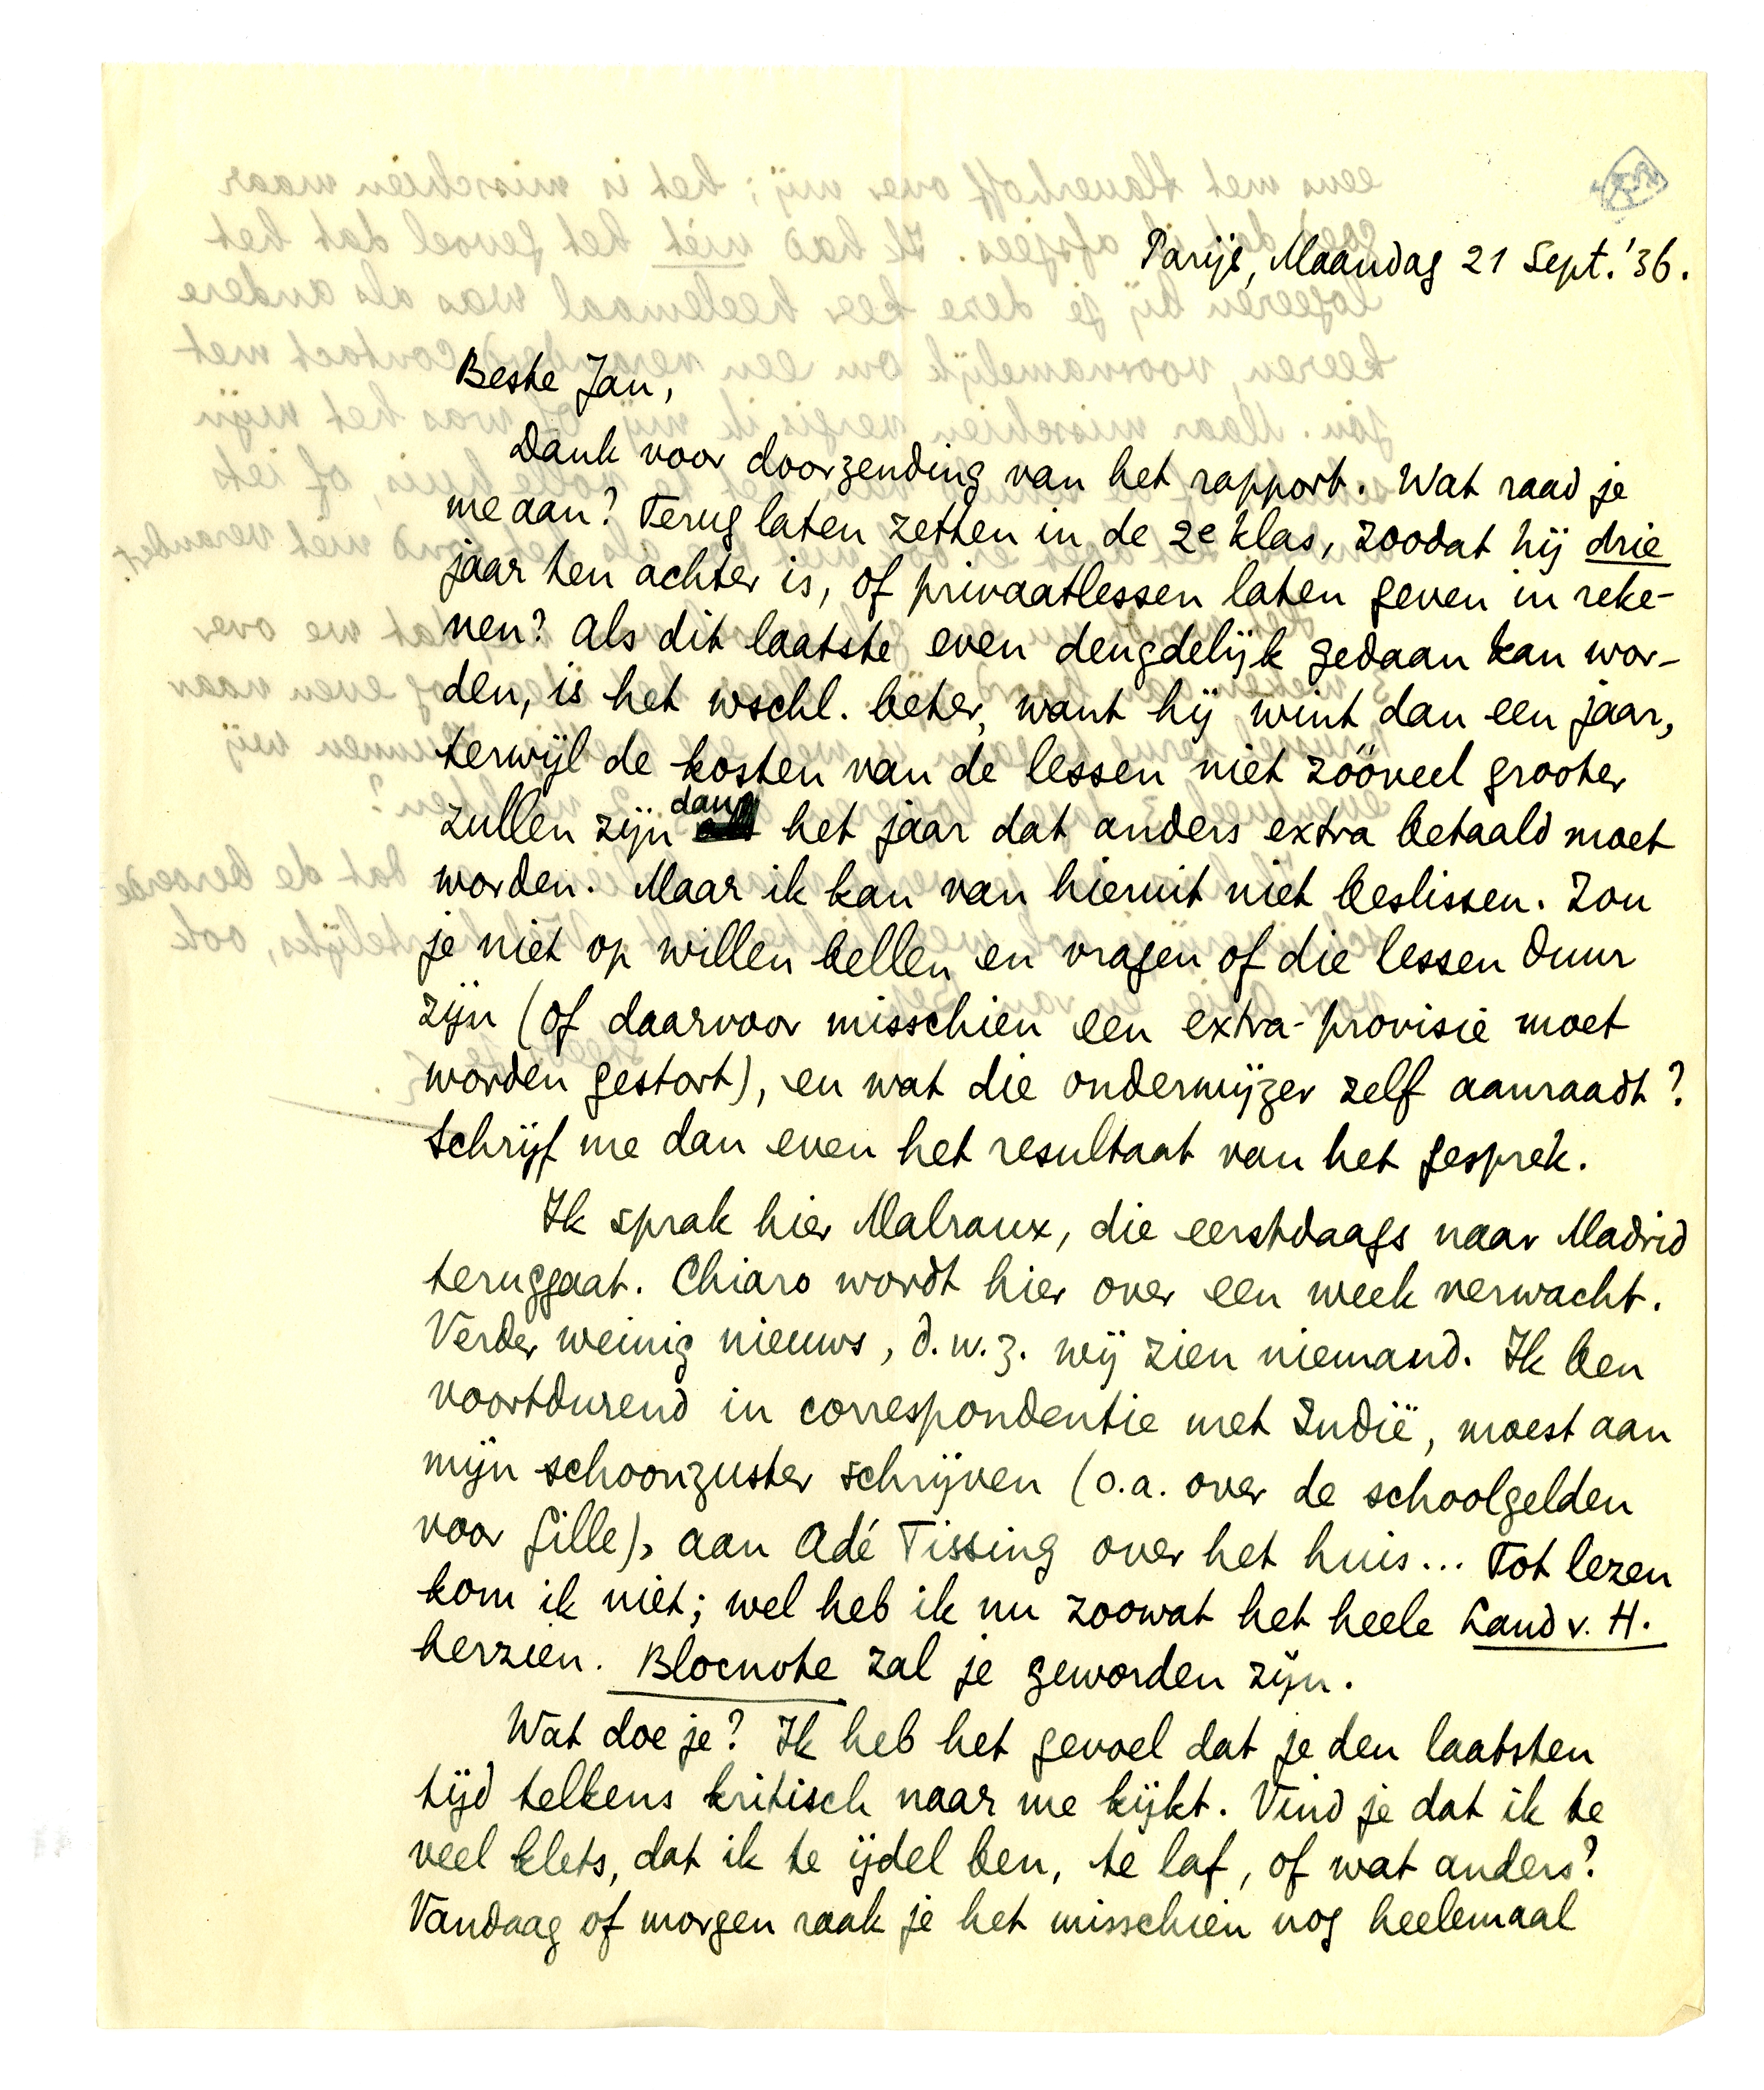 Parijs, Maandag 21 Sept. '36.
Beste Jan,
Dank voor doorzending van het rapport. Wat raad je
me aan? Terug laten zetten in de 2e klas, zoodat hij drie
jaar ten achter is, of privaatlessen laten geven in reke-
nen? Als dit laatste even deugdelijk gedaan kan wor-
den, is het wschl. beter, want hij wint dan een jaar,
terwijl de kosten van de lessen niet zóóveel grooter
zullen zijn dan het jaar dat anders extra betaald moet
worden. Maar ik kan van hieruit niet beslissen. Zou
je niet op willen bellen en vragen of die lessen duur
zijn (of daarvoor misschien een extra-provisie moet
worden gestort), en wat die onderwijzer zelf aanraadt?
Schrijf me dan even het resultaat van het gesprek.
Ik sprak hier Malraux, die eerstdaags naar Madrid
teruggaat. Chiaro wordt hier over een week verwacht.
Verder weinig nieuws, d.w.z. wij zien niemand. Ik ben
voortdurend in correspondentie met Indië, moest aan
mijn schoonzuster schrijven (o.a. over de schoolgelden
voor Gille), aan Adé Tissing over het huis... Tot lezen
kom ik niet; wel heb ik nu zoowat het heele Land v. H.
herzien. Blocnote zal je geworden zijn.
Wat doe je? Ik heb het gevoel dat je den laatsten
tijd telkens kritisch naar me kijkt. Vind je dat ik te
veel klets, dat ik te ijdel ben, te laf, of wat anders?
Vandaag of morgen raak je het misschien nog heelemaal